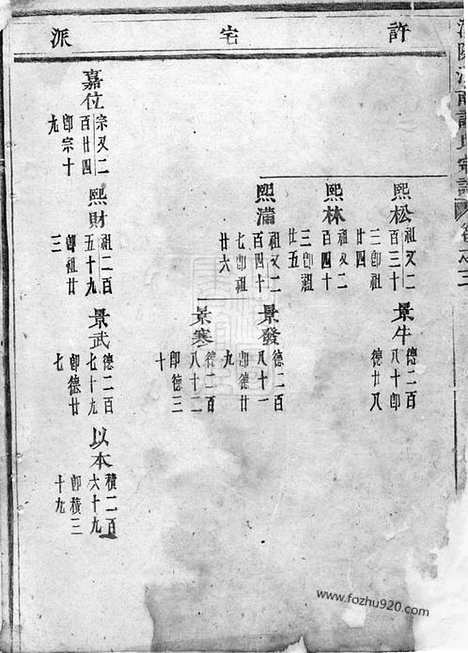 許宅派
熙松
祖又二
百三十
三即祖
廿四
景牛
德二百
八十即
德廿八
熙林
祖又二
百四十
三即祖
廿五
熙滿
祖又二
百四十
七即祖
廿六
景發
德二百
八十一
即德廿
九
景寒
德二百
八十二
即德三
十
嘉位
宗又二
百廿四
即宗十
九
熙財
祖二百
五十九
即祖廿
三
景武
德二百
七十九
即德廿
七
以本
積二百
六十九
即積三
十九
www.fozhu920.com